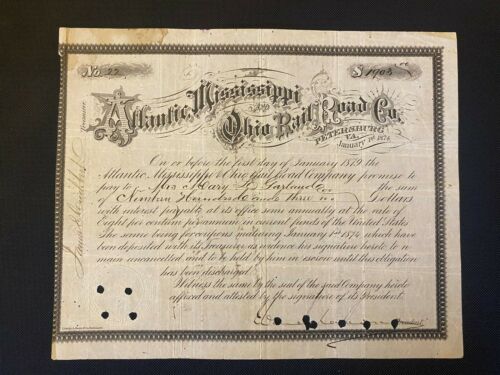 No. 22
$ 1903.00
Atlantic, Mississippi
AND
Ohio Rail Road Co.
PETERSBURG
VA.
January 1st 1874
Treasurer
On or before the first day of January 1879 the
Atlantic, Mississippi & Ohio Rail Road Company promise to
pay to Mrs Mary L. Garland the sum
of Nineteen Hundred and three Dollars
with interest payable at its office semi annually at the rate of
Eight per centum per annum in current funds of the United States.
The same being for coupons maturing January 1st 1874 which have
been deposited with its Treasurer as evidence his signature hereto to re-
main uncancelled and to be held by him in escrow until this obligation
has been discharged.
Witness the same by the seal of the said Company hereto
affixed and attested by the signature of its President.
President